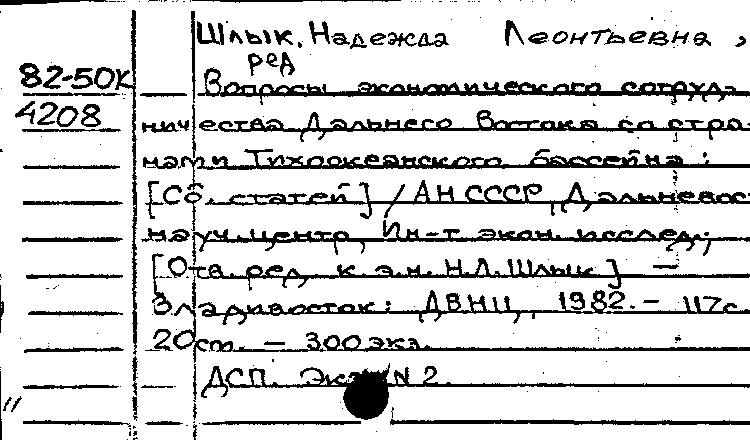 Шлык, Надежда Леонтьевна,
ред
82-50К Вопросы экономического сотруд-
4208 ничества Дальнего Востока со стра-
нами Тихоокеанского бассейна:
[Сб. статей] / АН СССР, Дальневос
науч. центр, Ин-т экон. исслед.;
[Отв. ред. к.э.н. Н.Л. Шлык] —
Владивосток: ДВНЦ, 1982. — 117с.
20см. — 300 экз.
ДСП. Экз. N 2.